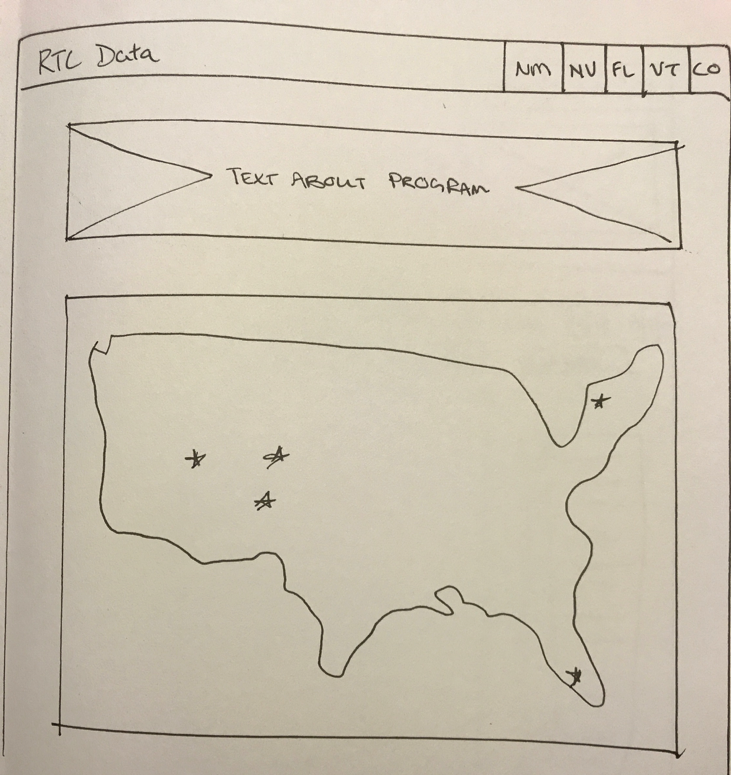 RTC Data
NM NV FL VT CO
TEXT ABOUT PROGRAM